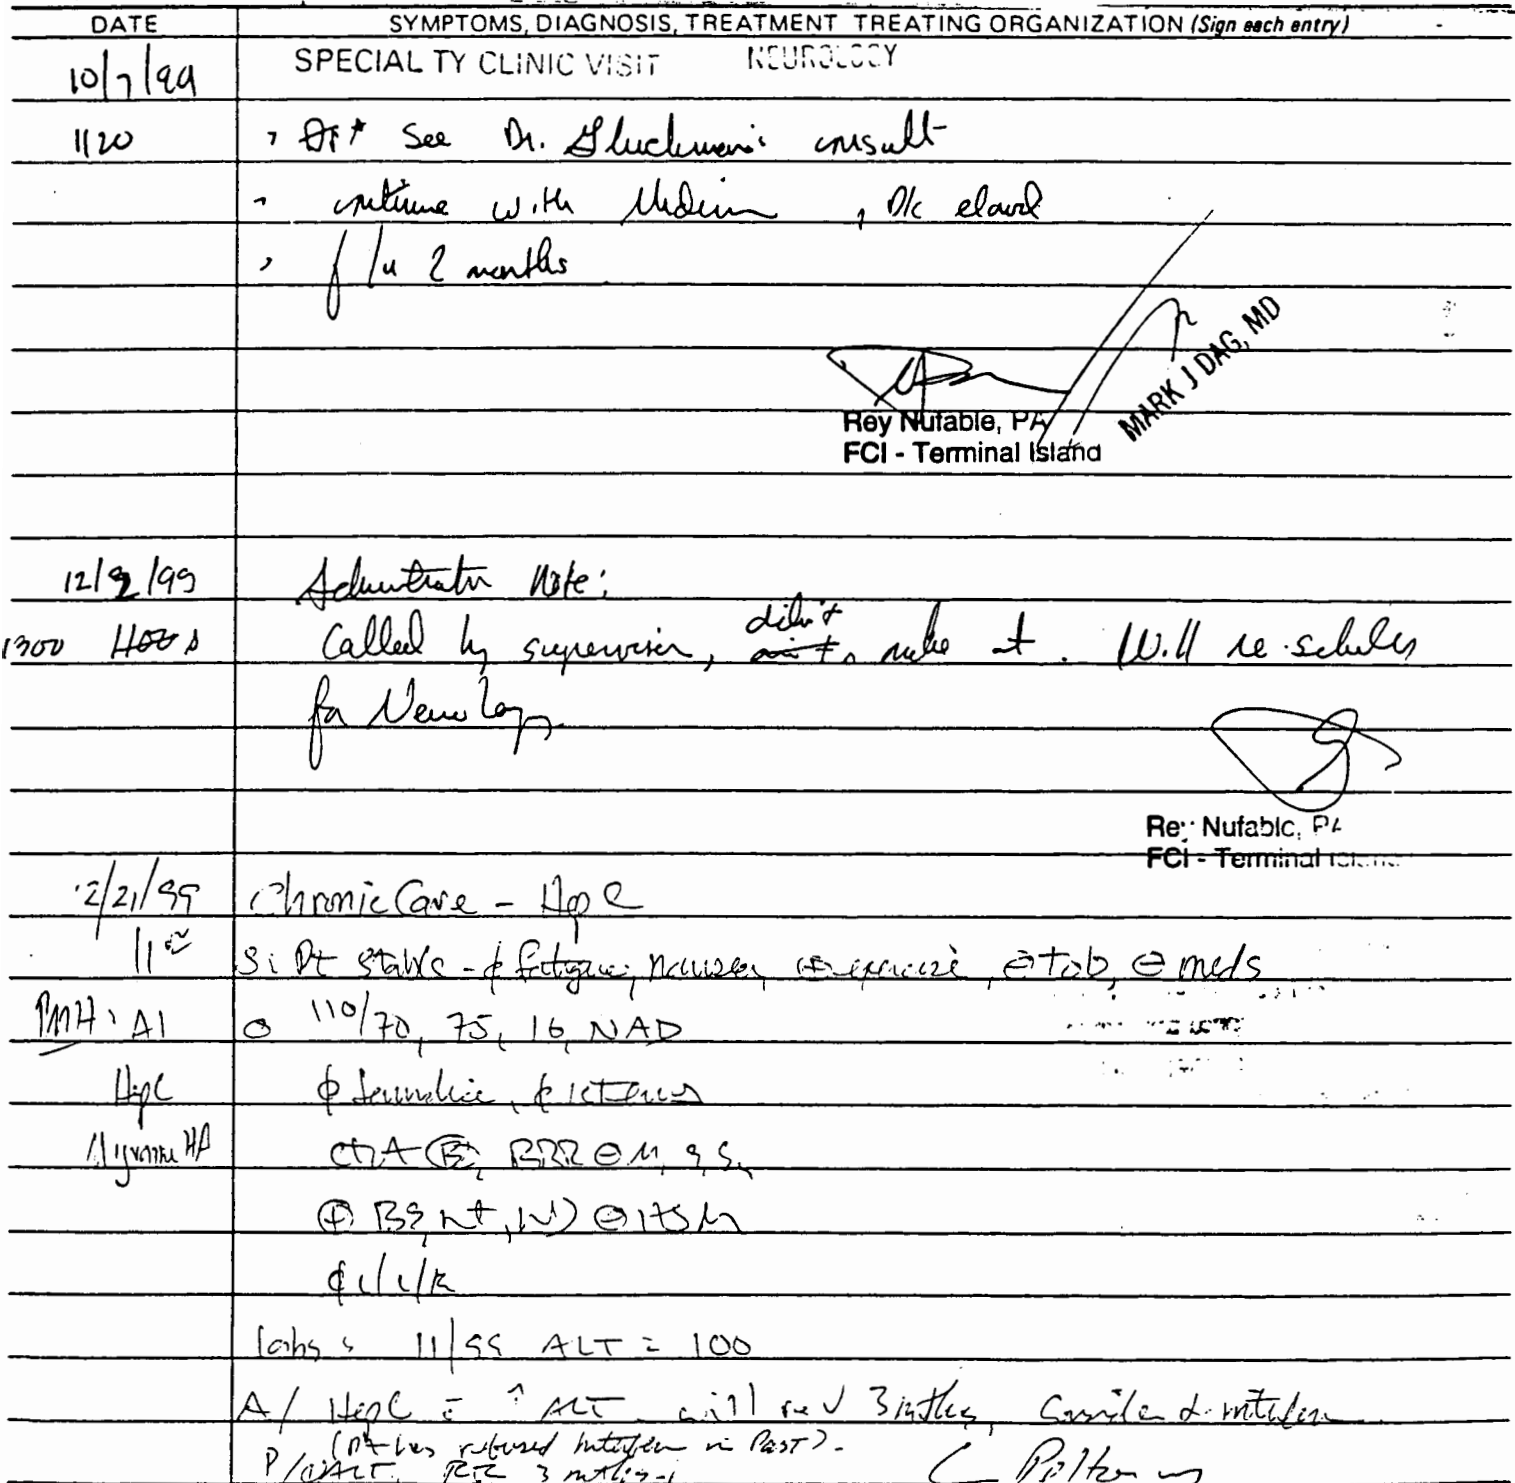 DATE SYMPTOMS, DIAGNOSIS, TREATMENT TREATING ORGANIZATION (Sign each entry)
10/7/99 SPECIALTY CLINIC VISIT NEUROLOGY
1120 See Dr. Gluckman's consult
continue with Midrin, D/c elavil
f/u 2 months
MARK J DAG, MD
Rey Nufable, PA
FCI - Terminal Island
12/9/99 Note:
1300 Called by supervisor, didn't make it. Will re-schedule
for Neurology
Rey Nufable, PA
FCI - Terminal Island
12/21/99 Chronic Care - Hep C
11 S: Pt stable - ϕ fatigue, nausea, ⊕ exercise, ⊖ tob, ⊖ meds
PMH: O 110/70, 75, 16, NAD
Hep C ϕ ϕ icterus
Migraine HA CTA Ⓑ, RRR ⊖ M,
⊕ BS, NT, ND ⊖ HSM
ϕ c/c/e
labs: 11/99 ALT = 100
A/ Hep C ↑ ALT will 3 mths, Consider
(Pt has refused in Past).
P/ ALT 3 mths